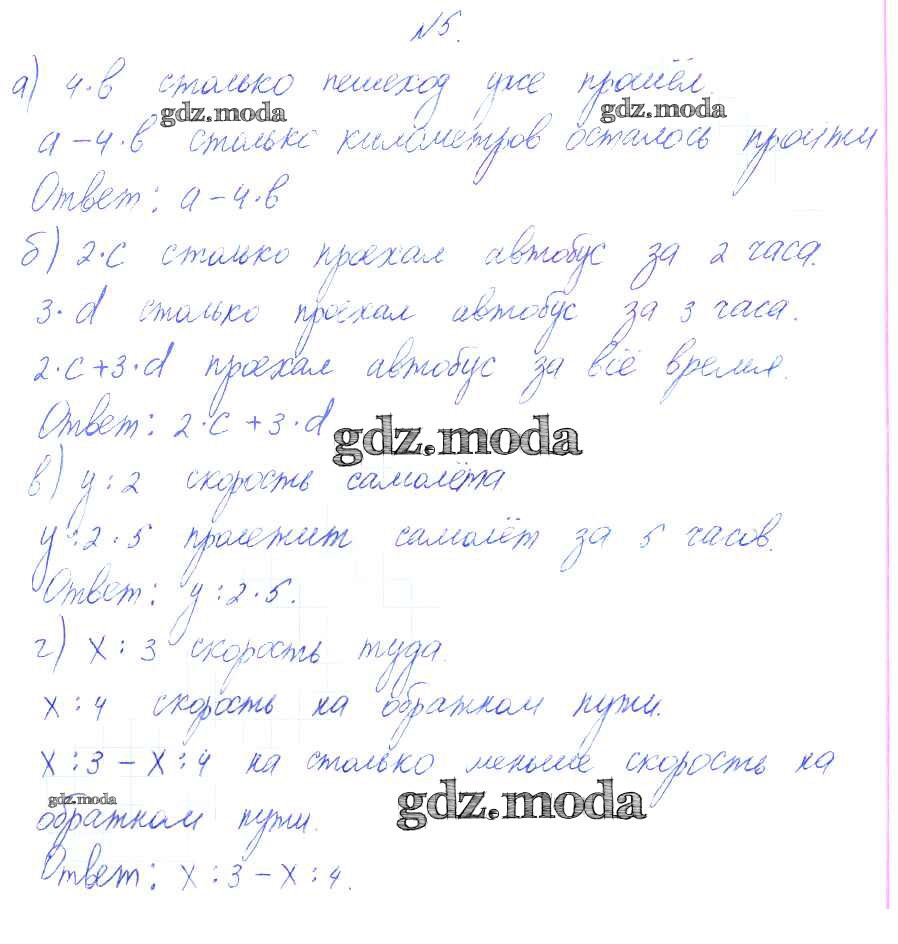 №5.
а) 4·в столько пешеход уже прошёл.
gdz.moda gdz.moda
а-4·в столько километров осталось пройти
Ответ: а-4·в
б) 2·с столько проехал автобус за 2 часа.
3·d столько проехал автобус за 3 часа.
2·с+3·d проехал автобус за всё время.
Ответ: 2·с+3·d
gdz.moda
в) у:2 скорость самолёта
у:2·5 пролетит самолёт за 5 часов.
Ответ: у:2·5.
г) х:3 скорость туда.
х:4 скорость на обратном пути.
х:3-х:4 на столько меньше скорость на
gdz.moda gdz.moda
обратном пути.
Ответ: х:3-х:4.